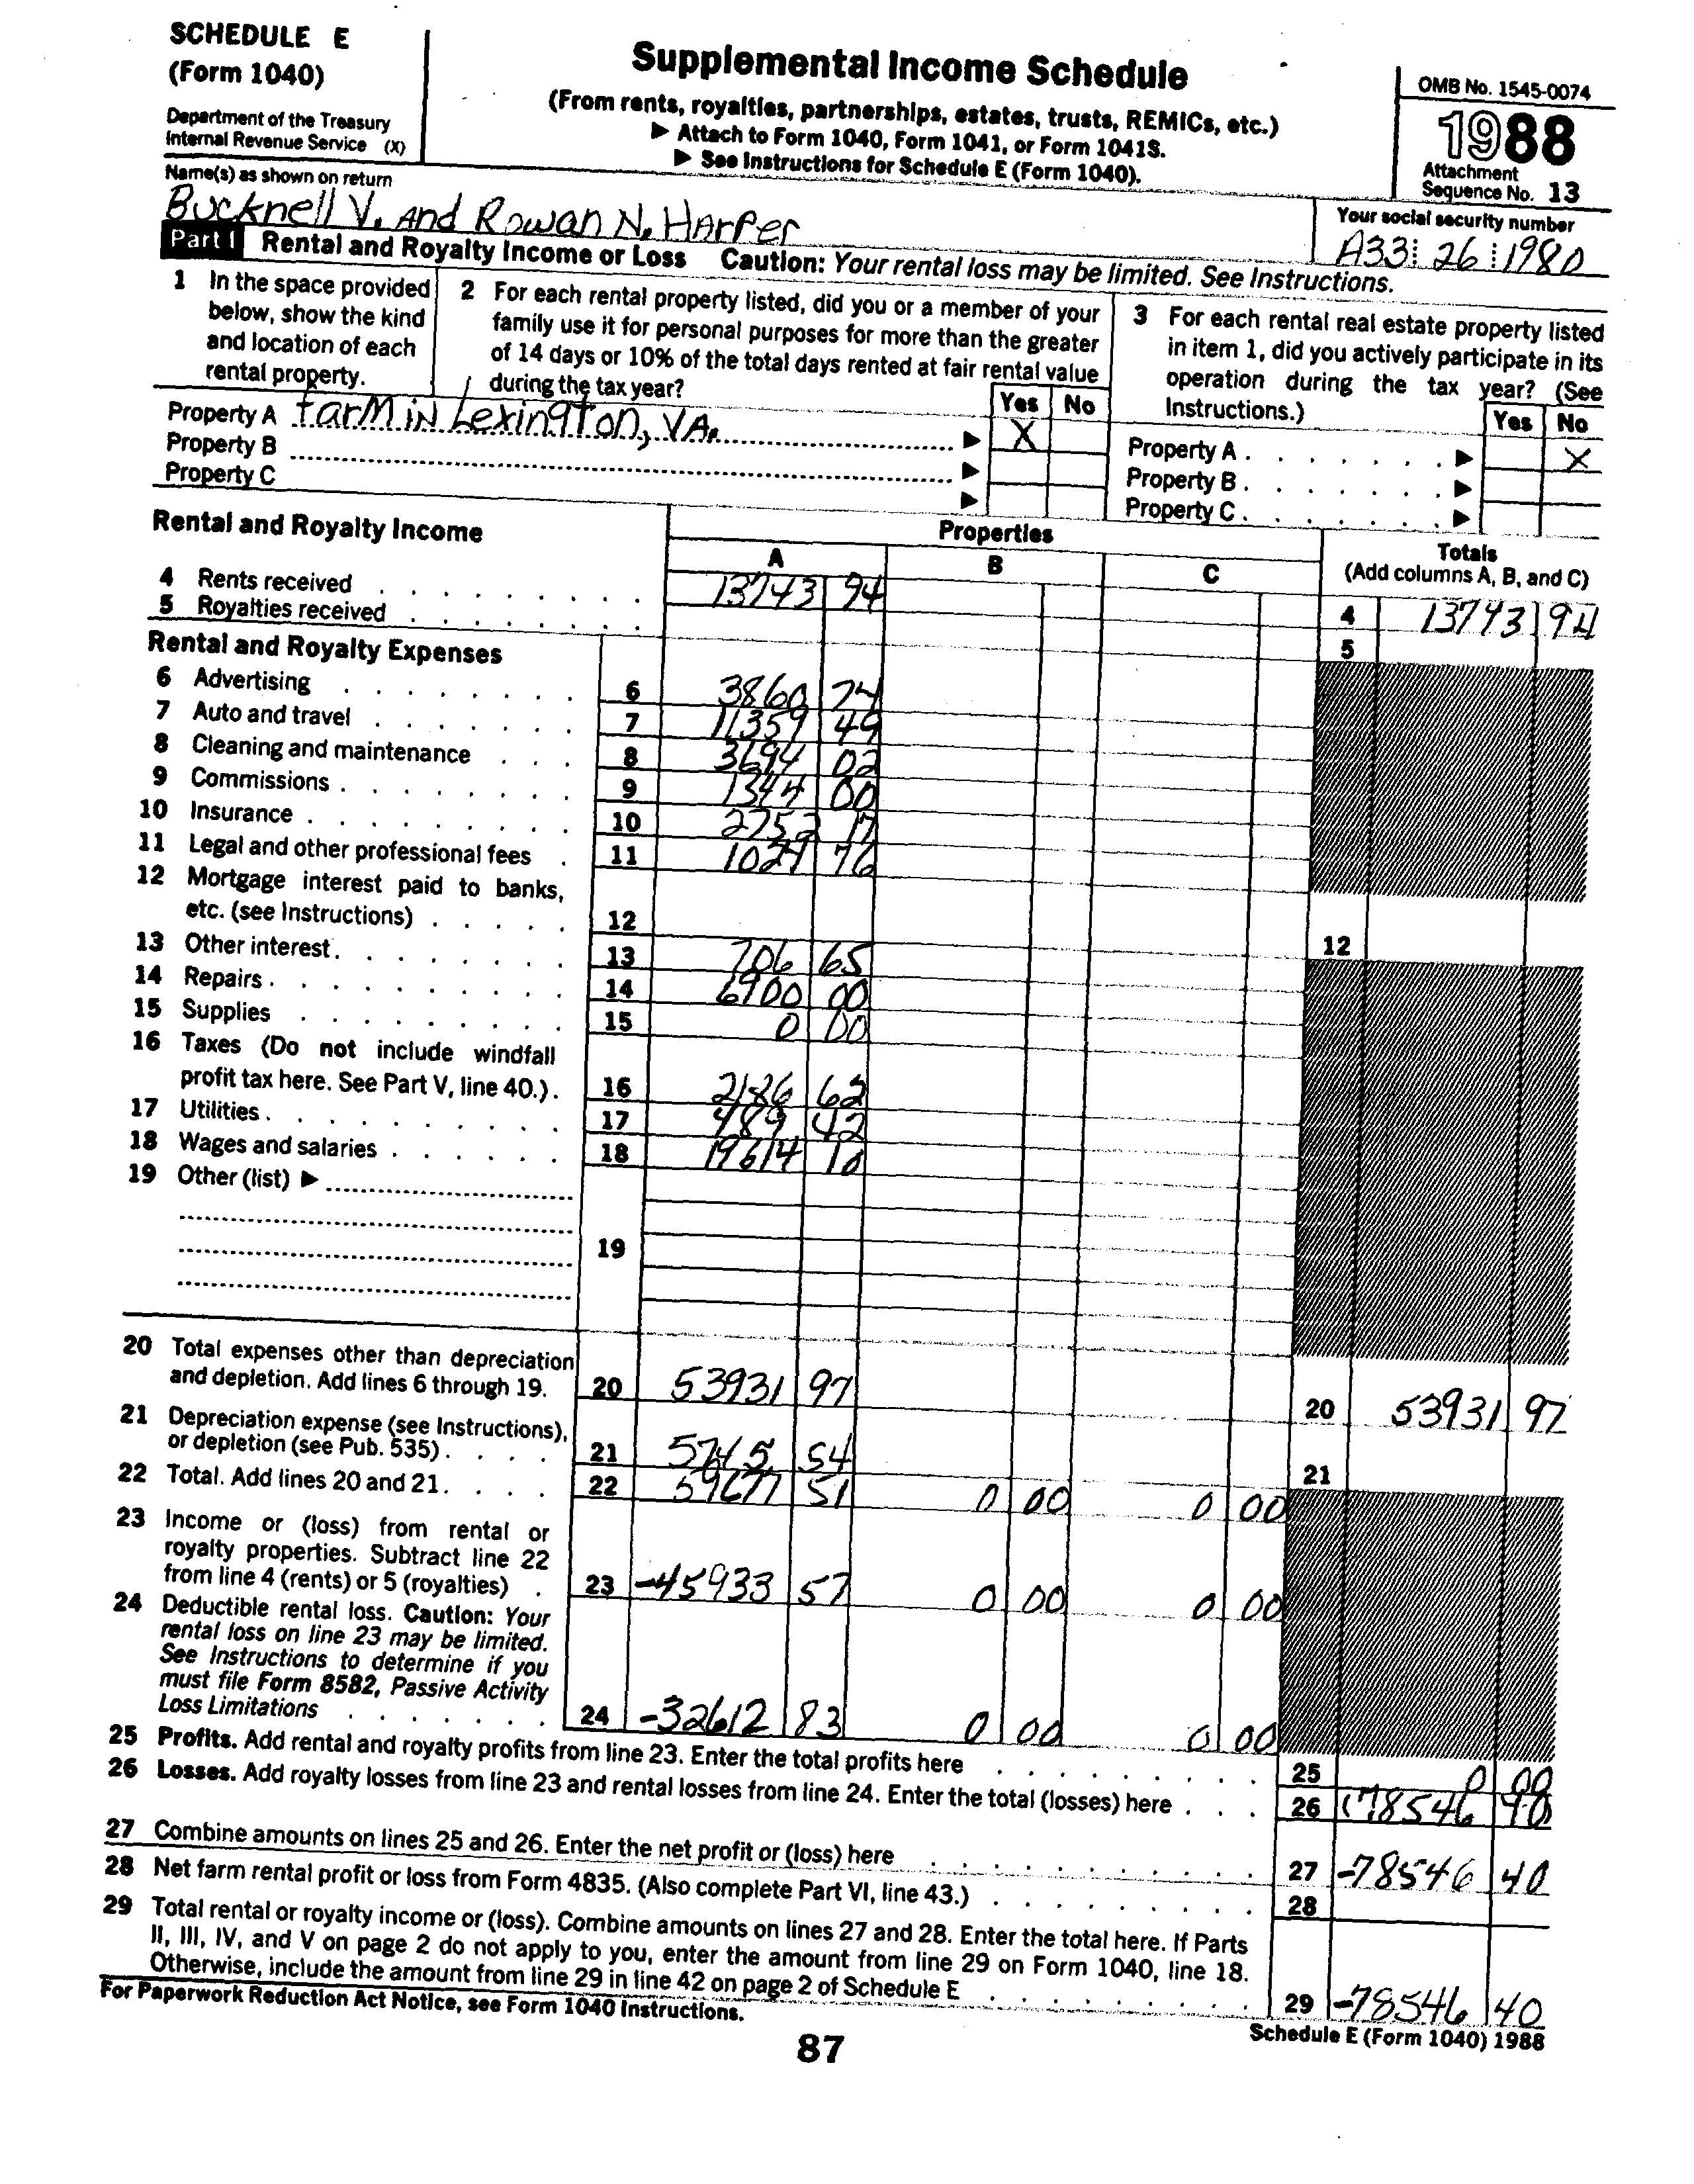 SCHEDULE E
(Form 1040)
Department of the Treasury
Internal Revenue Service (X)
Supplemental Income Schedule
(From rents, royalties, partnerships, estates, trusts, REMICs, etc.)
▶ Attach to Form 1040, Form 1041, or Form 1041S.
▶ See Instructions for Schedule E (Form 1040).
OMB No. 1545-0074
1988
Attachment
Sequence No. 13
Name(s) as shown on return
Bucknell V. And Rowan N. Harper
Your social security number
A33 26 1980
Part I Rental and Royalty Income or Loss Caution: Your rental loss may be limited. See Instructions.
1 In the space provided
below, show the kind
and location of each
rental property.
2 For each rental property listed, did you or a member of your
family use it for personal purposes for more than the greater
of 14 days or 10% of the total days rented at fair rental value
during the tax year?
Yes No
3 For each rental real estate property listed
in item 1, did you actively participate in its
operation during the tax year? (See
Instructions.)
Yes No
Property A Farm in Lexington, VA. ▶ X
Property B ▶
Property C ▶
Property A ▶ X
Property B ▶
Property C ▶
Rental and Royalty Income
Properties
A B C
Totals
(Add columns A, B, and C)
4 Rents received 13743 94 4 13743 94
5 Royalties received 5
Rental and Royalty Expenses
6 Advertising 6 3860 74
7 Auto and travel 7 11359 49
8 Cleaning and maintenance 8 3694 02
9 Commissions 9 1344 00
10 Insurance 10 2752 17
11 Legal and other professional fees 11 1024 76
12 Mortgage interest paid to banks,
etc. (see Instructions) 12 12
13 Other interest 13 706 65
14 Repairs 14 6900 00
15 Supplies 15 0 00
16 Taxes (Do not include windfall
profit tax here. See Part V, line 40.) 16 2186 62
17 Utilities 17 489 42
18 Wages and salaries 18 19614 10
19 Other (list) ▶
19
20 Total expenses other than depreciation
and depletion. Add lines 6 through 19. 20 53931 97 20 53931 97
21 Depreciation expense (see Instructions),
or depletion (see Pub. 535) 21 5745 54 21
22 Total. Add lines 20 and 21 22 59677 51 0 00 0 00
23 Income or (loss) from rental or
royalty properties. Subtract line 22
from line 4 (rents) or 5 (royalties) 23 -45933 57 0 00 0 00
24 Deductible rental loss. Caution: Your
rental loss on line 23 may be limited.
See Instructions to determine if you
must file Form 8582, Passive Activity
Loss Limitations 24 -32612 83 0 00 0 00
25 Profits. Add rental and royalty profits from line 23. Enter the total profits here 25 0 00
26 Losses. Add royalty losses from line 23 and rental losses from line 24. Enter the total (losses) here 26 (78546 40
27 Combine amounts on lines 25 and 26. Enter the net profit or (loss) here 27 -78546 40
28 Net farm rental profit or loss from Form 4835. (Also complete Part VI, line 43.) 28
29 Total rental or royalty income or (loss). Combine amounts on lines 27 and 28. Enter the total here. If Parts
II, III, IV, and V on page 2 do not apply to you, enter the amount from line 29 on Form 1040, line 18.
Otherwise, include the amount from line 29 in line 42 on page 2 of Schedule E 29 -78546 40
For Paperwork Reduction Act Notice, see Form 1040 Instructions.
Schedule E (Form 1040) 1988
87